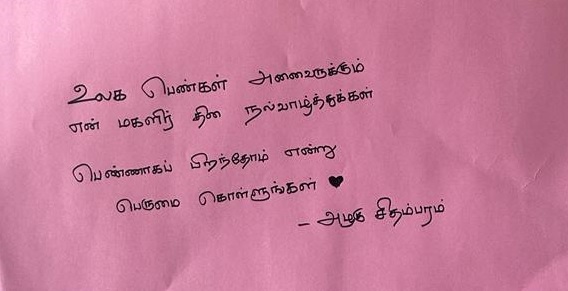 உலக பெண்கள் அனைவருக்கும்
என் மகளிர் தின நல்வாழ்த்துக்கள்
பெண்ணாகப் பிறந்தோம் என்று
பெருமை கொள்ளுங்கள் ♥
- அழகு சிதம்பரம்